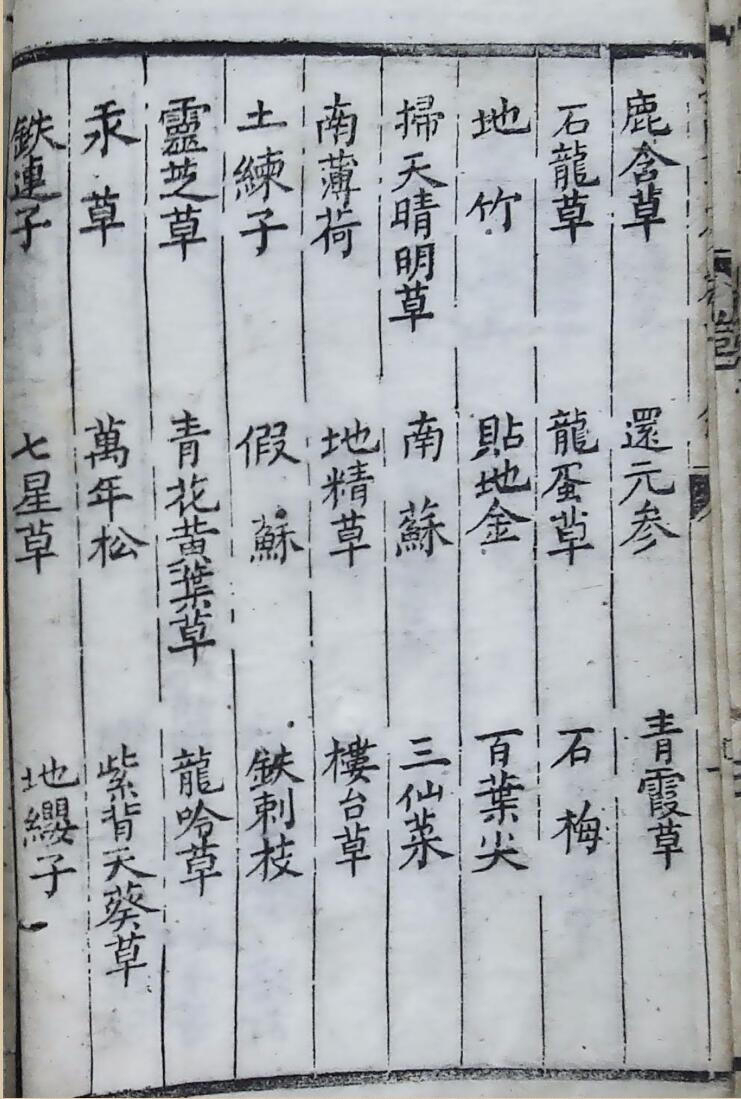 鹿含草 還元参 青霞草
石龍草 龍蛋草 石梅
地竹 貼地金 百葉尖
掃天晴明草 南蘇 三仙菜
南薄荷 地精草 樓台草
土練子 假蘇 鉄刺枝
靈芝草 青花黃葉草 龍吟草
汞草 萬年松 紫背天葵草
鉄連子 七星草 地纓子